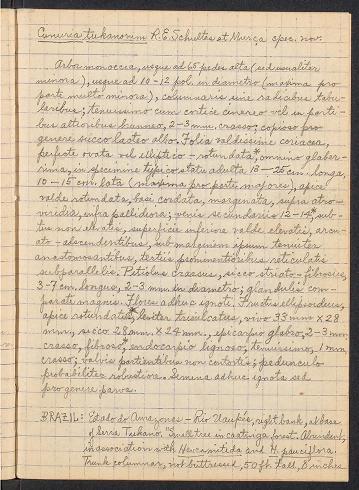 Cunuria tukanorum R.E. Schultes et Murça spec. nov.
Arbor monoecia, usque ad 65 pedes alta (sed usualiter
minora), usque ad 10-12 pol. in diametro (maxima pro
parte multo minora), columnaris sine radicibus tabu-
laribus; tenuissimo cum cortice cinereo vel in parti-
bus altioribus brunneo, 2-3 mm. crasso; copioso pro
genere succo lacteo albo. Folia validissime coriacea,
perfecte ovata vel elliptico-rotundata, omnino glaber-
rima, in specimine typico statu adulta 18-25 cm. longa,
10-15 cm. lata (maxima pro parte majores), apice
valde rotundata, basi cordata, marginata, supra atro-
viridia, infra pallidiora; venis secundariis 12-14, sub-
tus non elevatis, superficie inferiore valde elevatis, arcu-
ato-ascendentibus, sub marginem ipsum tenuiter
anastomosantibus, tertiis prominentioribus reticulatis
subparallelis. Petiolus crassus, sicco striato-fibrosus,
3-7 cm. longus, 2-3 mm. in diametro; glandulis com-
parate magnis. Flores adhuc ignoti. Fructus ellipsoideus,
apice rotundatus, leviter trisulcatus, vivo 33 mm. x 28
mm., sicco 28 mm. x 24 mm., epicarpio glabro, 2-3 mm.
crasso, fibroso, endocarpio lignoso, tenuissimo, 1 mm.
crasso; valvis partientibus non contortis; pedunculo
probabiliter robustiora. Semina adhuc ignota sed
pro genere parva.
BRAZIL: Estado do Amazonas - Rio Uaupés, right bank, at base
of Serra Tukano. "Small tree in caatinga forest. Abundant,
in association with Hevea nitida and H. pauciflora.
Trunk columnar, not buttressed, 50 ft. tall, 8 inches